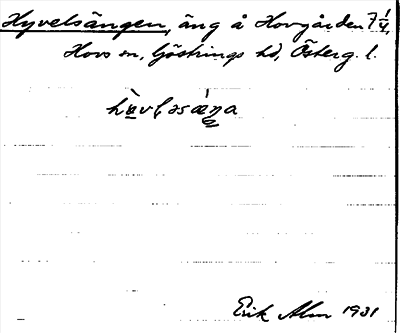 Hyvelsängen, äng å Hovgården 7 1/4,
Hovs sn, Göstrings hd, Österg. l.
Erik Alm 1931